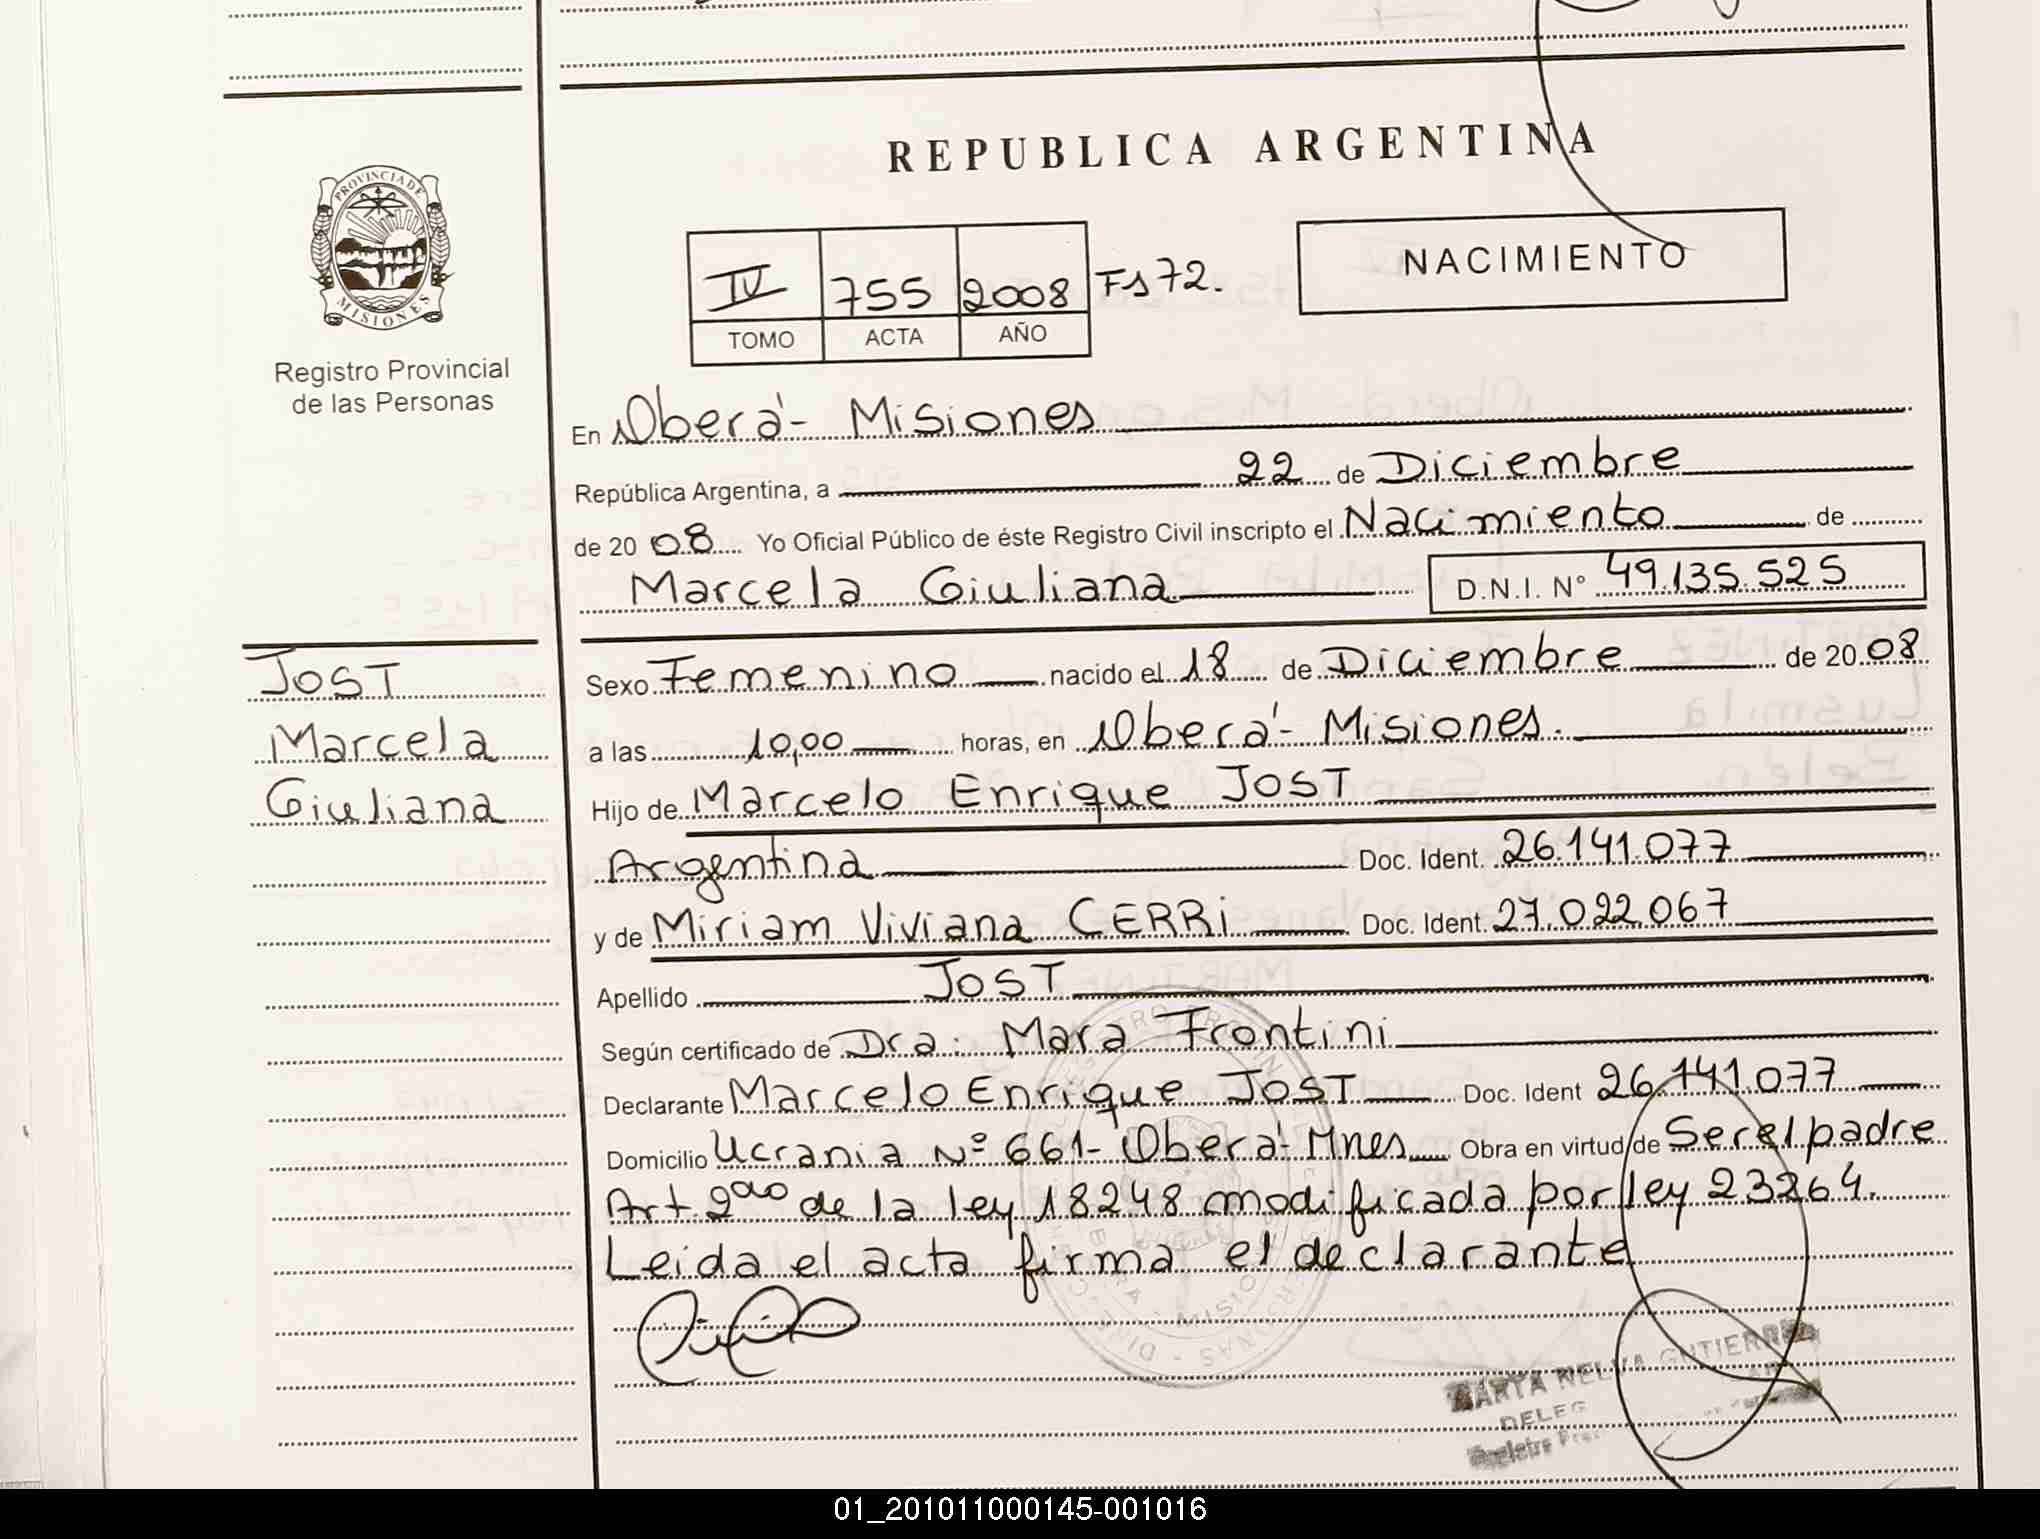 PROVINCIA DE
MISIONES
Registro Provincial
de las Personas
JOST
Marcela
Giuliana
REPUBLICA ARGENTINA
IV 755 2008 Fs 72.
TOMO ACTA AÑO
NACIMIENTO
En Oberá - Misiones
República Argentina, a 22 de Diciembre
de 2008 Yo Oficial Público de éste Registro Civil inscripto el Nacimiento de
Marcela Giuliana D.N.I. Nº 49.135.525
Sexo Femenino nacido el 18 de Diciembre de 2008
a las 10,00 horas, en Oberá - Misiones.
Hijo de Marcelo Enrique JOST
Argentina Doc. Ident. 26.141.077
y de Miriam Viviana CERRI Doc. Ident. 27.022.067
Apellido JOST
Según certificado de Dra. Mara Frontini
Declarante Marcelo Enrique JOST Doc. Ident 26.141.077
Domicilio Ucrania Nº 661 - Oberá - Mnes Obra en virtud de Ser el padre
Art. 2do de la ley 18248 modificada por ley 23264.
Leida el acta firma el declarante
MARTA NELVA GUTIERREZ
DELEG
Registro
01_201011000145-001016